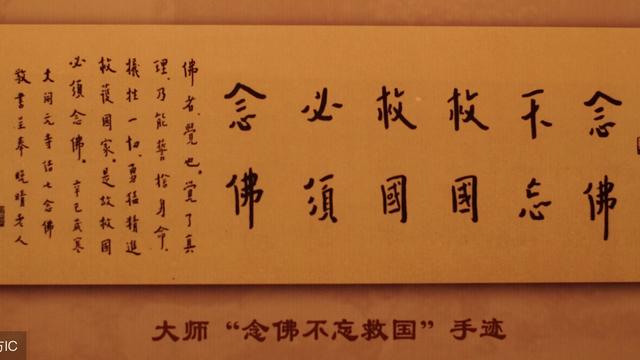 念佛
不忘
救國
救國
必須
念佛
佛者,覺也。覺了真
理,乃能誓捨身命,
犧牲一切,勇猛精進
救護國家。是故救國
必須念佛。辛巳歲寒
大開元寺結七念佛
敬書呈奉晚晴老人
大师“念佛不忘救国”手迹
IC